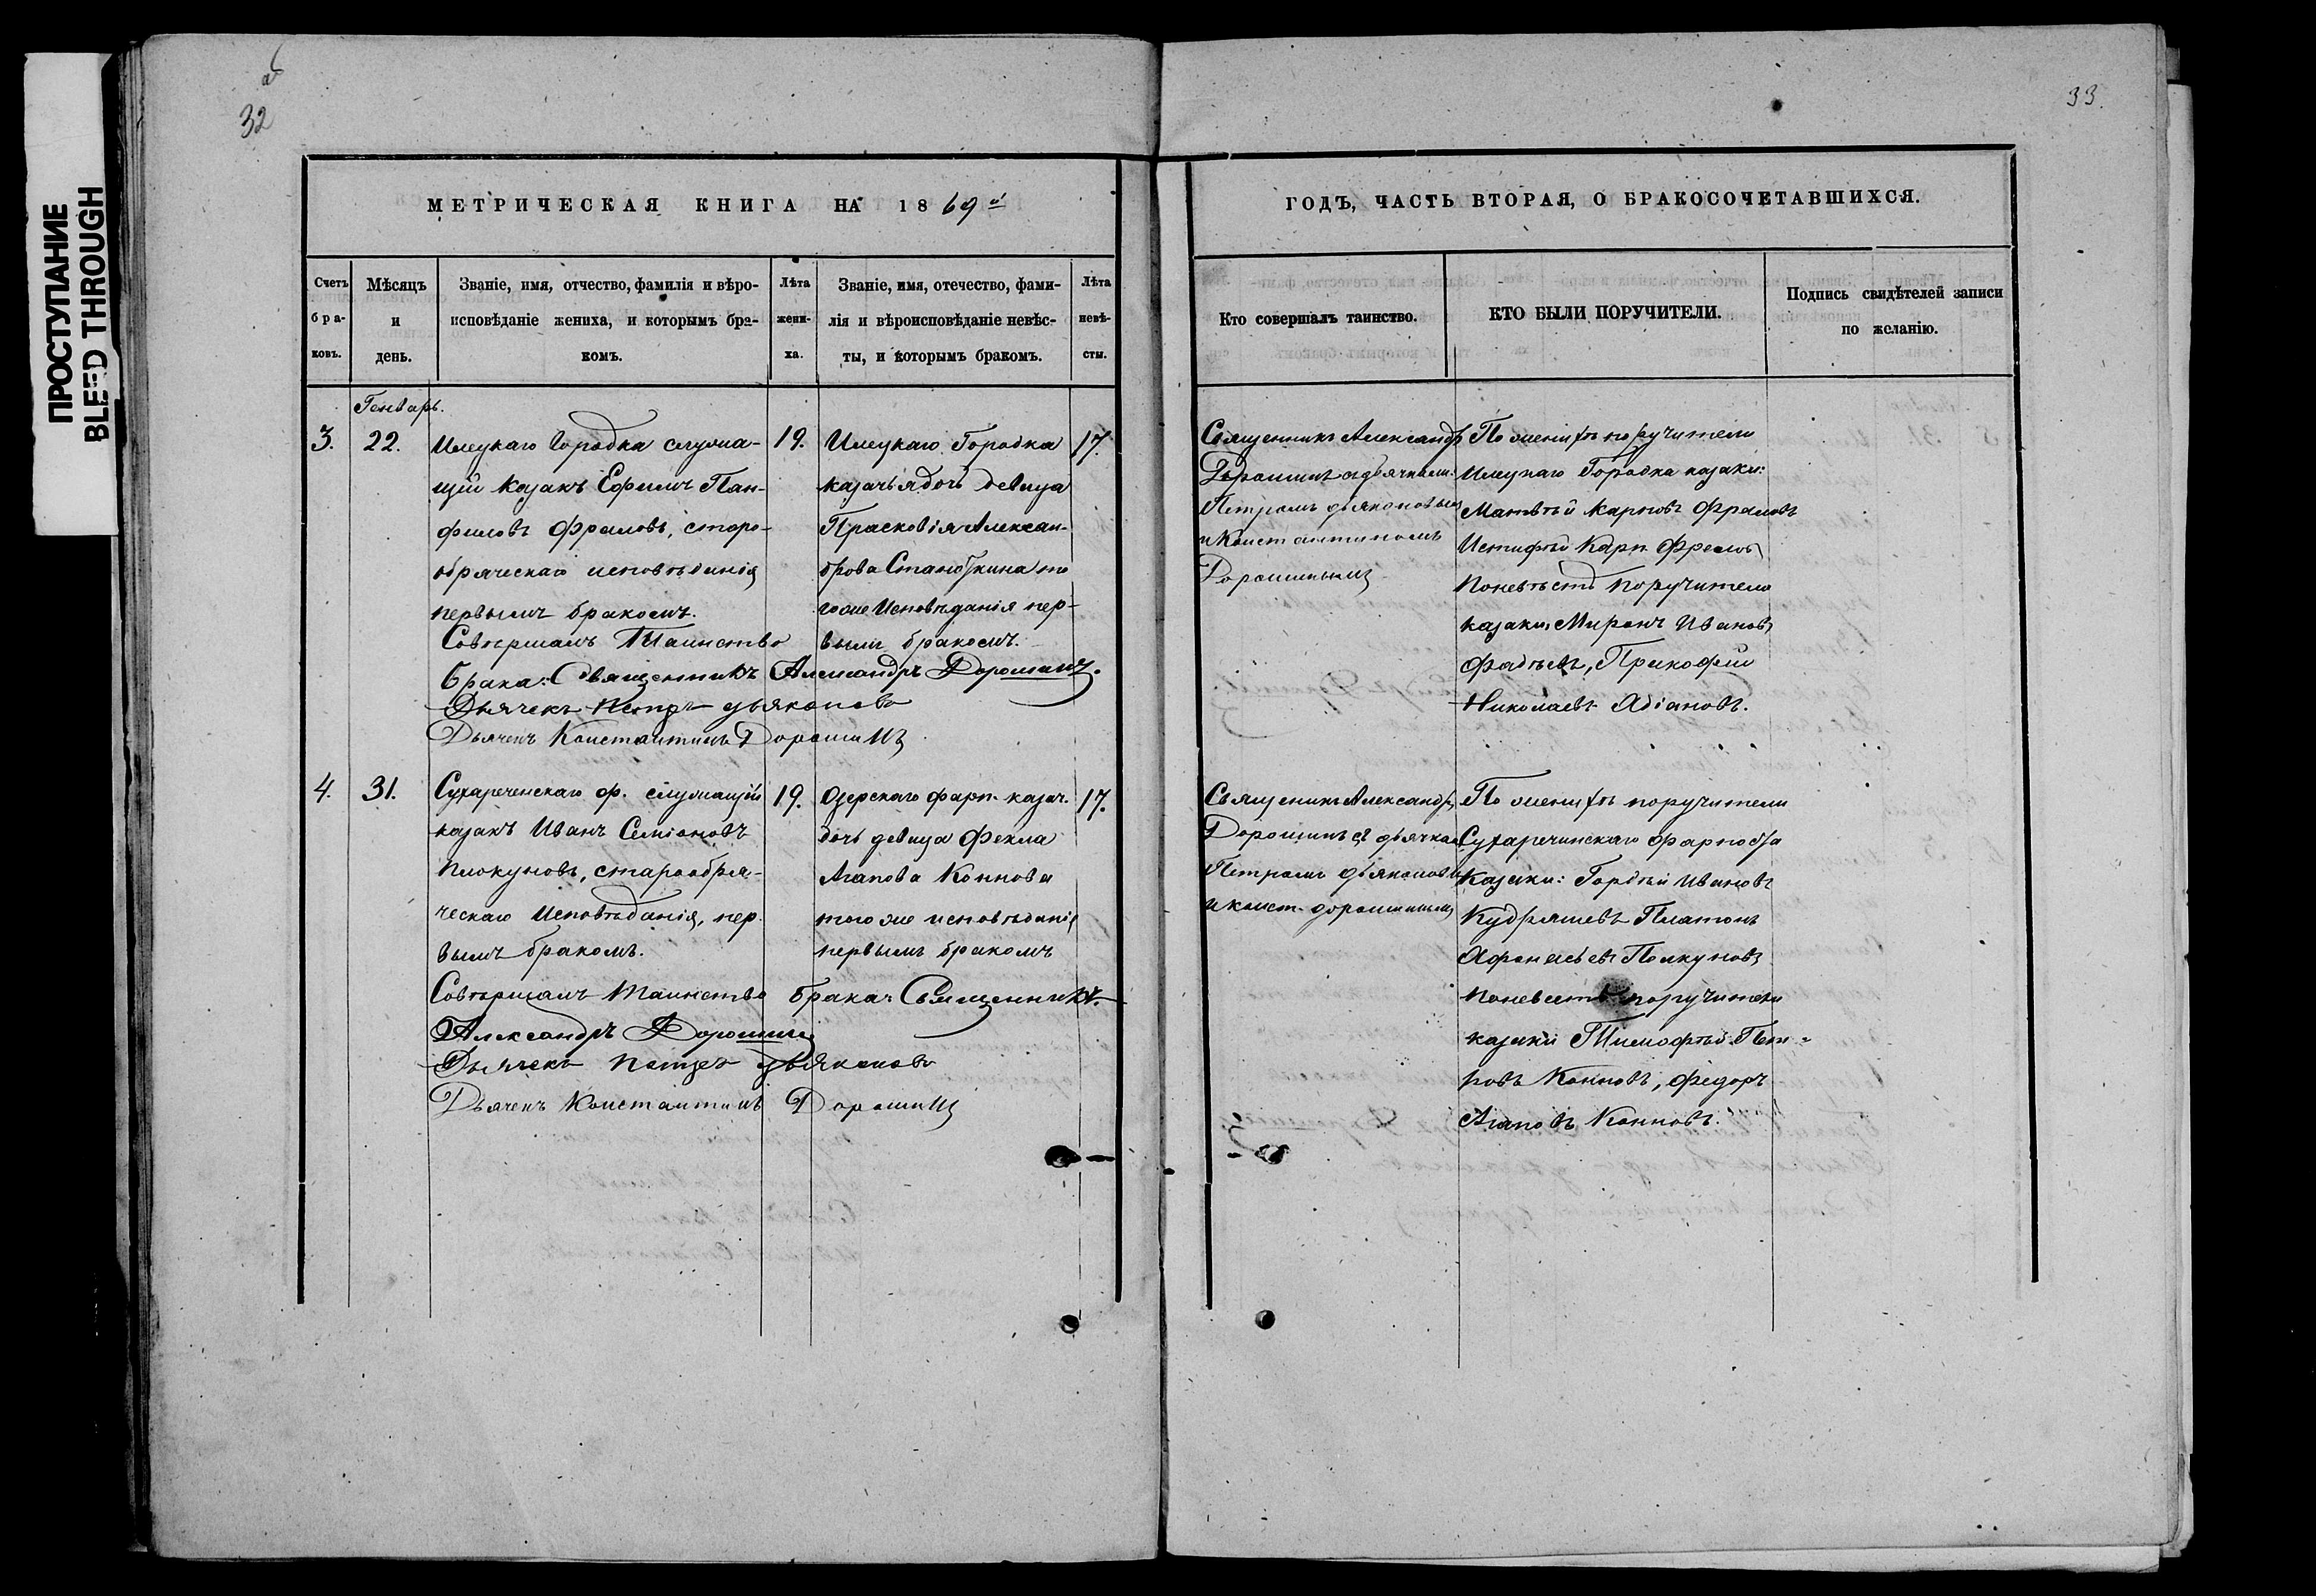 ПРОСТУПАНИЕ
BLEED THROUGH
32
33.
МЕТРИЧЕСКАЯ КНИГА НА 1869й
Счетъ браковъ.
Мѣсяцъ и день.
Званіе, имя, отчество, фамилія и вѣроисповѣданіе жениха, и которымъ бракомъ.
Лѣта жениха.
Званіе, имя, отечество, фамилія и вѣроисповѣданіе невѣсты, и которымъ бракомъ.
Лѣта невѣсты.
Генварь.
3.
22.
Илецкаго Городка служа-
щій казакъ Ефимъ Пан-
филовъ Фроловъ, старо-
обряческаго исповѣданія
первымъ бракомъ.
19.
Илецкаго Городка
казачья дочь девица
Прасковія Алексан-
дрова то
гоже Исповѣданія пер-
вымъ бракомъ.
17.
Совершалъ Таинство
брака: Священникъ Александръ Дорошинъ.
Дьячекъ Петръ Дьяконовъ
Дьячекъ Константинъ Дорошинъ
4.
31.
Сухареченскаго ф. служащій
казакъ Иванъ Семіоновъ
Плокуновъ, старообря-
ческаго Исповѣданія, пер-
вымъ бракомъ.
19.
Озерскаго фарп. казач.
дочь девица Фекла
Агапова Коннова
того же исповѣданія
первымъ бракомъ
17.
Совершалъ Таинство брака: Священникъ
Александръ Дорошинъ
Дьячекъ Петръ Дьяконовъ
Дьячекъ Константинъ Дорошинъ
ГОДЪ, ЧАСТЬ ВТОРАЯ, О БРАКОСОЧЕТАВШИХСЯ.
Кто совершалъ таинство.
КТО БЫЛИ ПОРУЧИТЕЛИ.
Подпись свидѣтелей записи по желанію.
Священникъ Александръ
Дорошинъ съ дьячками:
Петромъ Дьяконовымъ
и Константиномъ
Дорошинымъ
По женихѣ поручители
Илецкаго Городка казаки:
Матвѣй Карповъ Фроловъ
Карп. Фроловъ
по невѣстѣ поручители
казаки: Миронъ Ивановъ
Фадѣевъ, Прокофій
Николаевъ
Священникъ Александръ
Дорошинъ съ дьячками
Петромъ Дьяконовы
и конст. Дорошинымъ
По женихѣ поручители
Сухаречинскаго Фарпоста
Казаки: Гордѣй Ивановъ
Кудряшевъ Платонъ
Афанасьевъ Полкуновъ
по невестѣ поручители
казаки Тимофѣй Пет-
ровъ Конновъ, Федоръ
Агаповъ Конновъ.